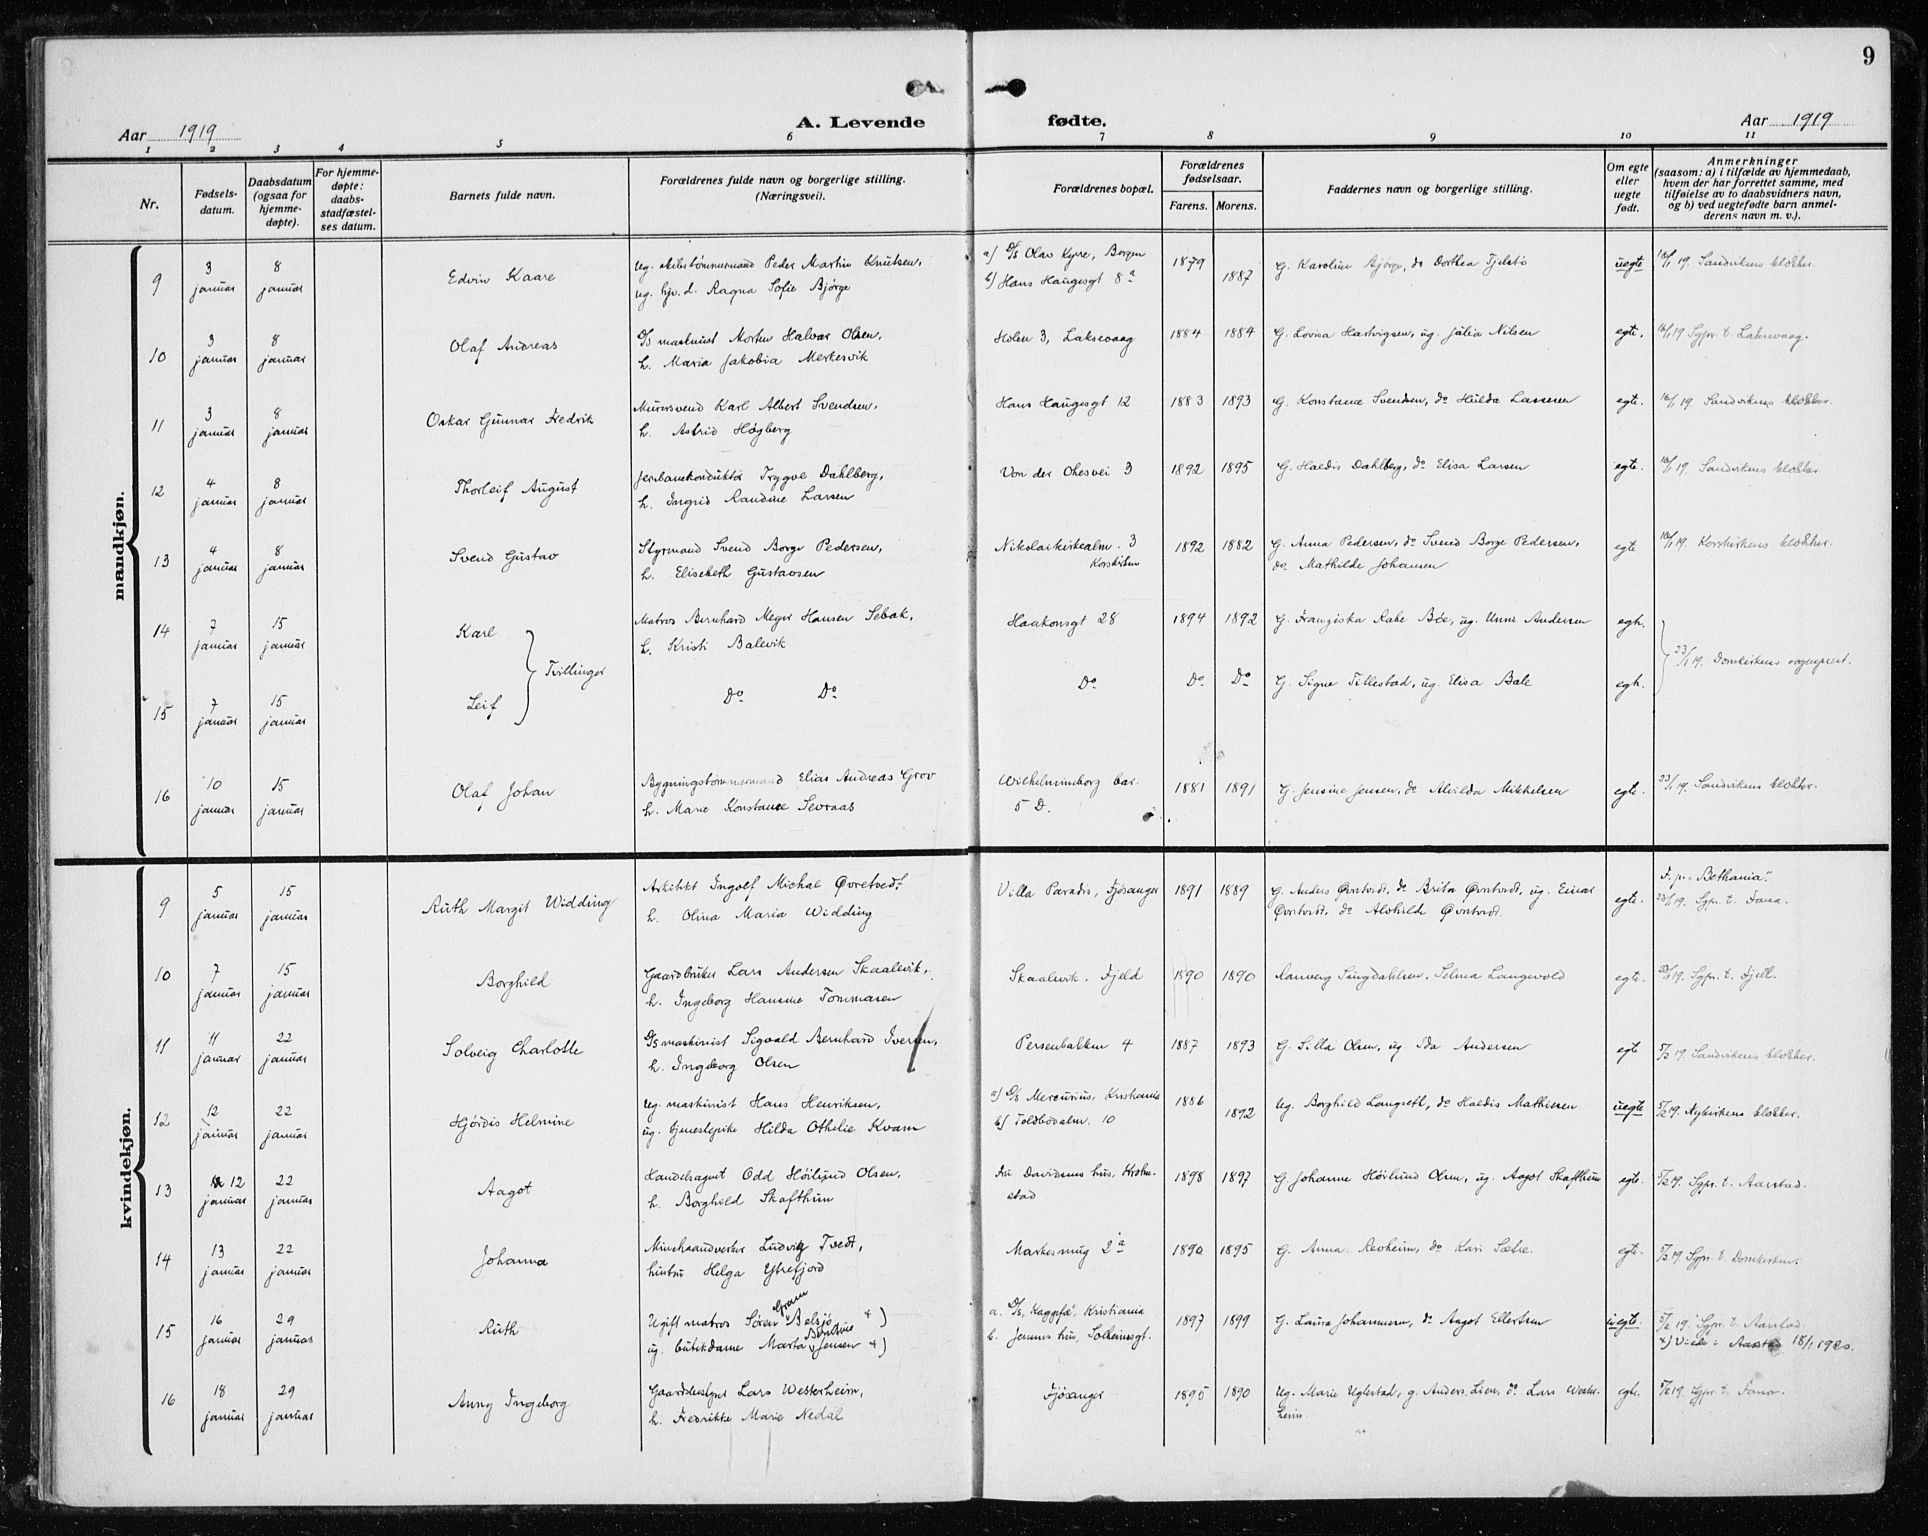 9
Aar 1919
A. Levende fødte.
Aar 1919
1 2 3 4 5 6 7 8 9 10 11
Nr.
Fødsels-
datum.
Daabsdatum
(ogsaa for
hjemme-
døpte).
For hjemme-
døpte:
daabs-
stadfæstel-
ses datum.
Barnets fulde navn.
Forældrenes fulde navn og borgerlige stilling.
(Næringsvei).
Forældrenes bopæl.
Forældrenes
fødselsaar.
Farens. Morens.
Faddernes navn og borgerlige stilling.
Om egte
eller
uegte
født.
Anmerkninger
(saasom: a) i tilfælde av hjemmedaab,
hvem der har forrettet samme, med
tilføielse av to daabsvidners navn,
og b) ved uegtefødte barn anmel-
derens navn m. v.).
mandkjøn.
9 3 januar 8 januar Edvin Kaare
Ug. skibstømmermand Peder Martin Knutsen,
ug. hjv. d. Ragna Sofie Bjørge
a) D/S Olav Kyrre, Bergen
b) Hans Haugesgt 8a
1879 1887
G. Karoline Bjørge, do Dorthea Tjelstö
uegte
16/1 19. Sandvikens klokker.
10 3 januar 8 januar Olaf Andreas
D/S maskinist Morten Halvar Olsen,
h. Maria Jakobia Merkesvik
Holen 3, Laksevaag
1884 1884
G. Lovisa Hartvigsen, ug. Julia Nilsen
egte.
16/1 19 Sgpr. t. Laksevaag.
11 3 januar 8 januar Oskar Gunnar Fredrik
Murersvend Karl Albert Svendsen,
h. Astrid Høgberg
Hans Haugesgt 12
1883 1893
G. Konstanse Svendsen, do Hulda Larssen
egte.
16/1 19 Sandvikens klokker.
12 4 januar 8 januar Thorleif August
Jernbanekonduktör Trygve Dahlberg,
h. Ingrid Randine Larsen
Von der Ohesvei 3
1892 1895
G. Haldis Dahlberg, do Elisa Larsen
egte.
16/1 19. Sandvikens klokker.
13 4 januar 8 januar Svend Gustav
Styrmand Svend Borge Pedersen,
h. Elisebeth Gustavsen
Nikolaikirkealm. 3
Korskirken
1892 1882
G. Anna Pedersen, do Svend Borge Pedersen,
do Mathilde Johansen
egte
16/1 19. Korskirkens klokker.
14 7 januar 15 januar Karl
Matros Bernhard Meyer Hansen Sebak,
h. Kristi Balevik
Haakonsgt 28
1894 1892
G. Franziska Rabe Bøe, ug. Unni Andersen
egte.
Tvillinger
23/1 19. Domkirkens sogneprest.
15 7 januar 15 januar Leif
Do Do
Do
Do Do
G. Signe Tillestad, ug. Elisa Bale
egte.
16 10 januar 15 januar Olaf Johan
Bygningstømmermand Elias Andreas Grov
h. Marie Konstanse Sevraas
Wilhelmineborg bar.
5 D.
1881 1891
G. Jensine Jensen, do Alvilda Mikkelsen
egte.
23/1 19. Sandvikens klokker.
kvindekjøn.
9 5 januar 15 januar Ruth Margit Widding
Arkitekt Ingolf Michal Øvretvedt
h. Olina Maria Widding
Villa Paradis, Fjösanger
1891 1889
G. Anders Øvretvedt, do Brita Øvretvedt, ug. Einar
Øvretvedt, do Alvhilde Øvretvedt.
egte.
F. p. "Bethania".
23/1 19. Sgpr. t. Fana.
10 7 januar 15 januar Borghild
Gaardbruker Lars Andersen Skaalevik,
h. Ingeborg Hansine Tommasen
Skaalevik, Fjeld
1890 1890
Ranveig Singdahlsen, Selma Langevold
egte.
23/1 19. Sgpr. t. Fjell.
11 11 januar 22 januar Solveig Charlotte
D/S maskinist Sigvald Bernhard Iversen,
h. Ingeborg Olsen
Persenbakken 4
1887 1893
G. Silla Olsen, ug. Ida Andersen
egte
5/2 19. Sandvikens klokker.
12 12 januar 22 januar Hjördis Helmine
Ug. maskinist Hans Henriksen,
ug. tjenestepike Hilda Othelie Kvam
a) D/S Mercurius, Kristiania
b) Toldbodalm. 10
1886 1892
Ug. Borghild Langseth, do Haldis Mathiesen
uegte
5/2 19. Nykirkens klokker.
13 12 januar 22 januar Aagot
Handelsagent Odd Höilund Olsen,
h. Borghild Skafthun
Fru Davidsens hus, Krohn-
stad
1898 1897
G. Johanne Höilund Olsen, ug. Aagot Skafthun
egte.
5/2 19. Sgpr. t. Aarstad.
14 13 januar 22 januar Johanna
Minehaandverker Ludvig Tvedt,
hustru Helga Ytrefjord
Markesmug 2a
1890 1895
G. Anna Revheim, do Kari Sætre.
egte.
5/2 19 Sgpr. t. Domkirken.
15 16 januar 29 januar Ruth
Ugift matros Sören Gram Belsjö +)
ug. butikdame Marta Berntine Jensen +)
a. D/S "Kaggefæ", Kristiania
b. Jensens hus, Solheimsgt.
1897 1899
G. Laura Johannesen, do Aagot Ellertsen
uegte.
5/2 19. Sgpr. t. Aarstad.
+) Viet i Aarstad 18/1 1920.
16 18 januar 29 januar Anny Ingeborg
Lars Westerheim,
h. Fredrikke Marie Nedal
Fjösanger
1895 1890
Ug. Marie Uglestad, g. Anders Lien, do Lars Wester-
heim.
egte.
5/2 19. Sgpr. t. Fana.